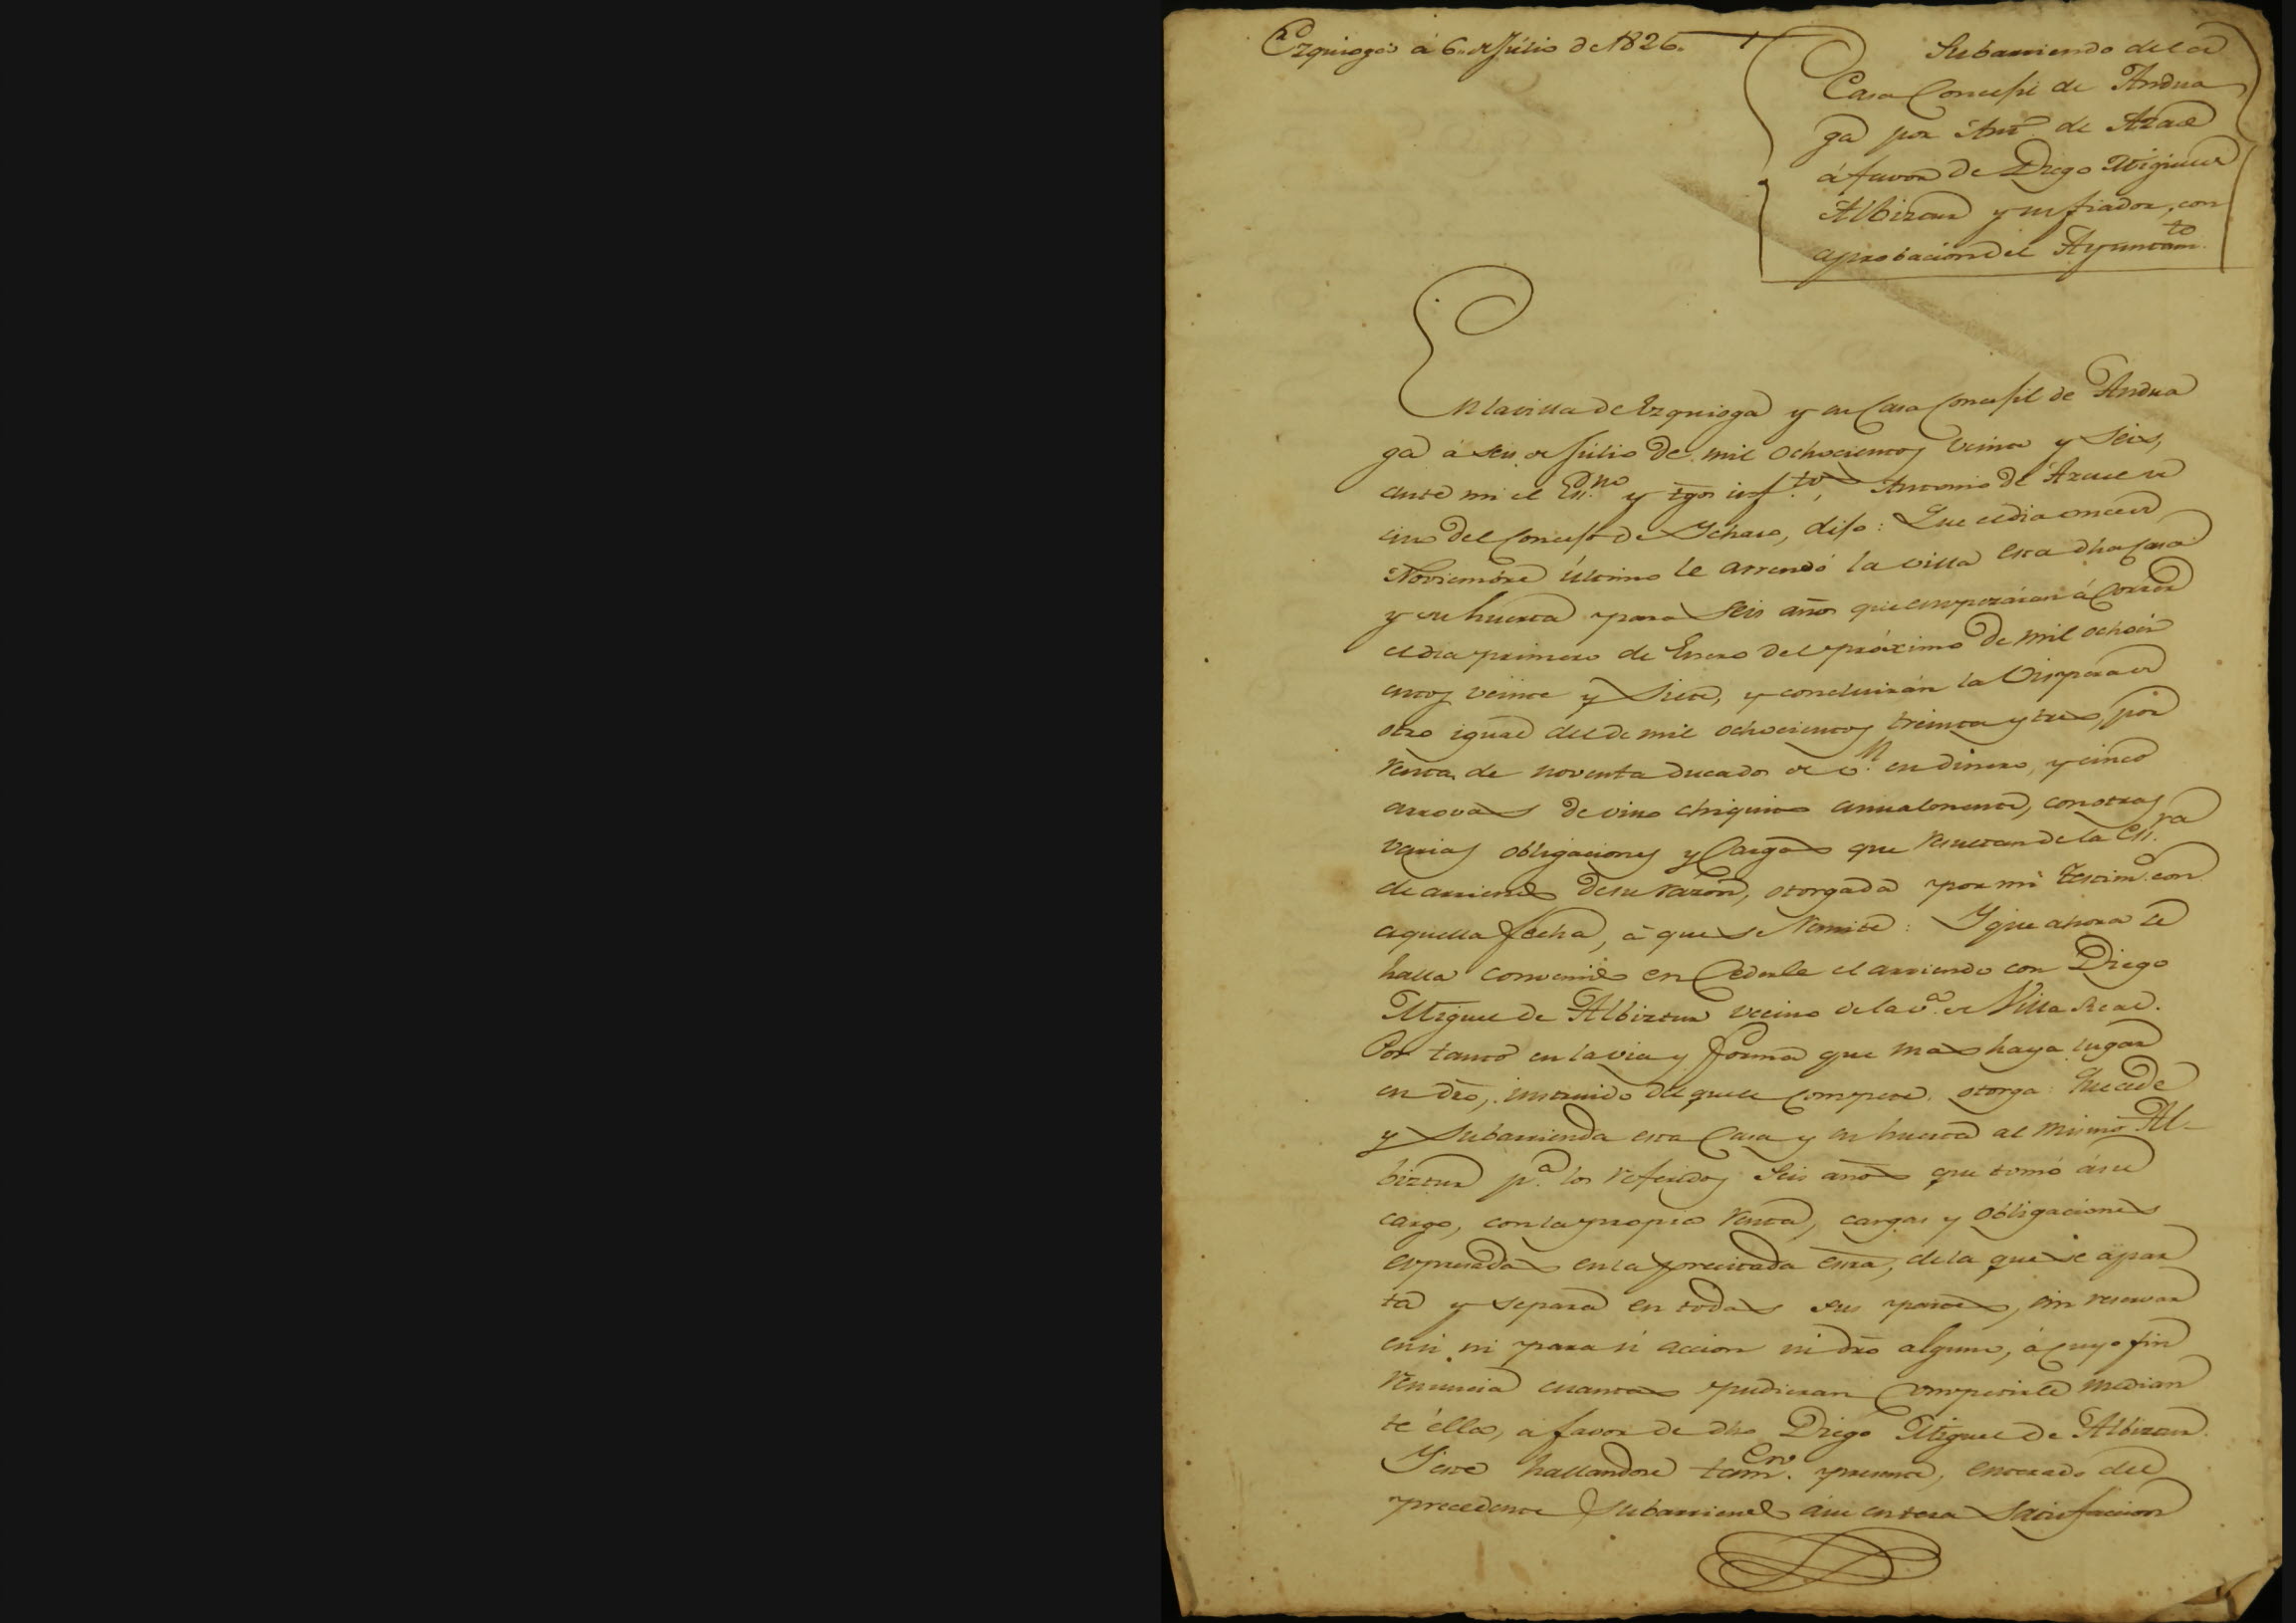 Ezquioga á 6. de Júlio de 1826.
Subarriendo de la
Casa Concejil de Andua
ga por Ant.º de Arane
á favor de Diego Miguel
Albiztur y su fiador, con
aprobacion del Ayuntam.to
En la villa de Ezquioga y su Casa Concejil de Andua
ga á seis de Júlio de mil ochocientos veinte y Seis,
ante mi el Es.no y tgos inf.tos, Antonio de Arane ve
cino del Concejo de Ychaso, dijo: Que el dia once de
Noviembre último le arrendó la villa esta dha Casa
y su huerta para Seis años que empezáran á Correr
el dia primero de Enero del próximo de mil ochoci
entos veinte y Siete, y concluirán la Vispera de
otro igual del de mil ochocientos treinta y tres, por
renta de noventa ducados de v.n en dinero, y cinco
arrovas de vino chiquito anualmente, con otras
varias obligaciones y Cargas que resultan de la Es.ra
de arriendo de su razón, otorgada por mi testim.º con
aquella fecha, á que se remite: Y que ahora se
halla convenido en Cederle el arriendo con Diego
Miguel de Albiztur vecino de la v.a de Villa Real.
Por tanto en la via y forma que mas haya lugar
en dro, instruido del que le Compete, otorga: Que cede
y Subarrienda esta Casa y su huerta al mismo Al-
biztur p.a los referidos Seis años que tomó á su
cargo, con la propia renta, cargas y obligaciones
expresadas en la precitada esra, de la que se apar
ta y separa en todas sus partes, sin reservar
en si ni para si accion ni dro alguno, á cuyo fin
renuncia cuantas pudieran Competirle median
te élla, a favor de dho Diego Miguel de Albiztur.
Y este hallandose tam.en presente, enterado del
precedente Subarriendo á su entera Satisfaccion